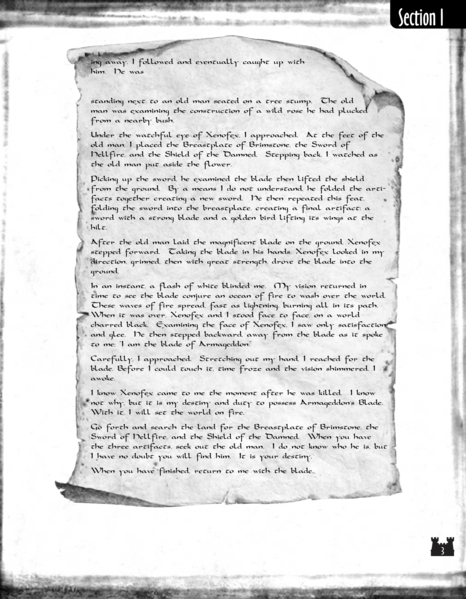 Section I
ing away. I followed and eventually caught up with
him. He was
standing next to an old man seated on a tree stump. The old
man was examining the construction of a wild rose he had plucked
from a nearby bush.
Under the watchful eye of Xenofex, I approached. At the feet of the
old man, I placed the Breastplate of Brimstone, the Sword of
Hellfire, and the Shield of the Damned. Stepping back, I watched as
the old man put aside the flower.
Picking up the sword, he examined the blade then lifted the shield
from the ground. By a means I do not understand, he folded the arti-
facts together creating a new sword. He then repeated this feat,
folding the sword into the breastplate, creating a final artifact: a
sword with a strong blade and a golden bird lifting its wings at the
hilt.
After the old man laid the magnificent blade on the ground, Xenofex
stepped forward. Taking the blade in his hands, Xenofex looked in my
direction, grinned, then with great strength, drove the blade into the
ground.
In an instant, a flash of white blinded me. My vision returned in
time to see the blade conjure an ocean of fire to wash over the world.
These waves of fire spread, fast as lightning, burning all in its path.
When it was over, Xenofex and I stood face to face on a world
charred black. Examining the face of Xenofex, I saw only satisfaction
and glee. He then stepped backward, away from the blade as it spoke
to me: "I am the blade of Armageddon."
Carefully, I approached. Stretching out my hand, I reached for the
blade. Before I could touch it, time froze and the vision shimmered. I
awoke.
I know Xenofex came to me the moment after he was killed. I know
not why, but it is my destiny and duty to possess Armageddon's Blade.
With it, I will set the world on fire.
Go forth and search the land for the Breastplate of Brimstone, the
Sword of Hellfire, and the Shield of the Damned. When you have
the three artifacts, seek out the old man. I do not know who he is, but
I have no doubt you will find him. It is your destiny.
When you have finished, return to me with the blade...
3